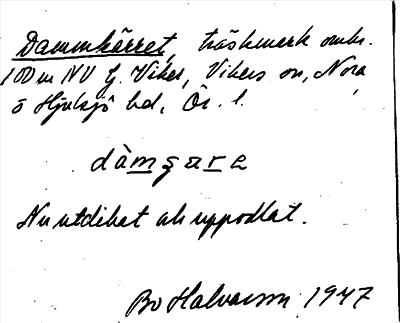 Dammkärret, träskmark omkr.
100 m NV G. Viker, Vikers sn, Nora
o Hjulsjö bd, Ör. l.
dàmʒɑre
Nu utdikat och uppodlat.
Bo Halvarson 1947